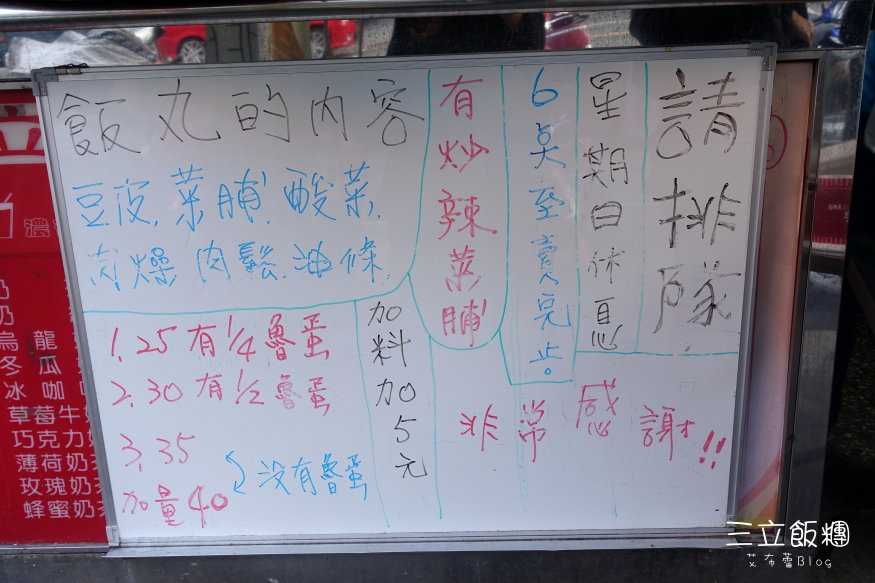 請排隊
星期日休息
6点至賣完止。
有炒辣菜脯
飯丸的內容
豆皮.菜脯.酸菜.
肉燥.肉鬆.油條.
1.25有1/4魯蛋
2.30有1/2魯蛋
3.35
加量40
没有魯蛋
加料加5元
非常感謝!!
濃
烏龍
冬瓜
冰咖
草莓牛
巧克力
薄荷奶
玫瑰奶
蜂蜜奶
三立飯糰
艾布蕾Blog